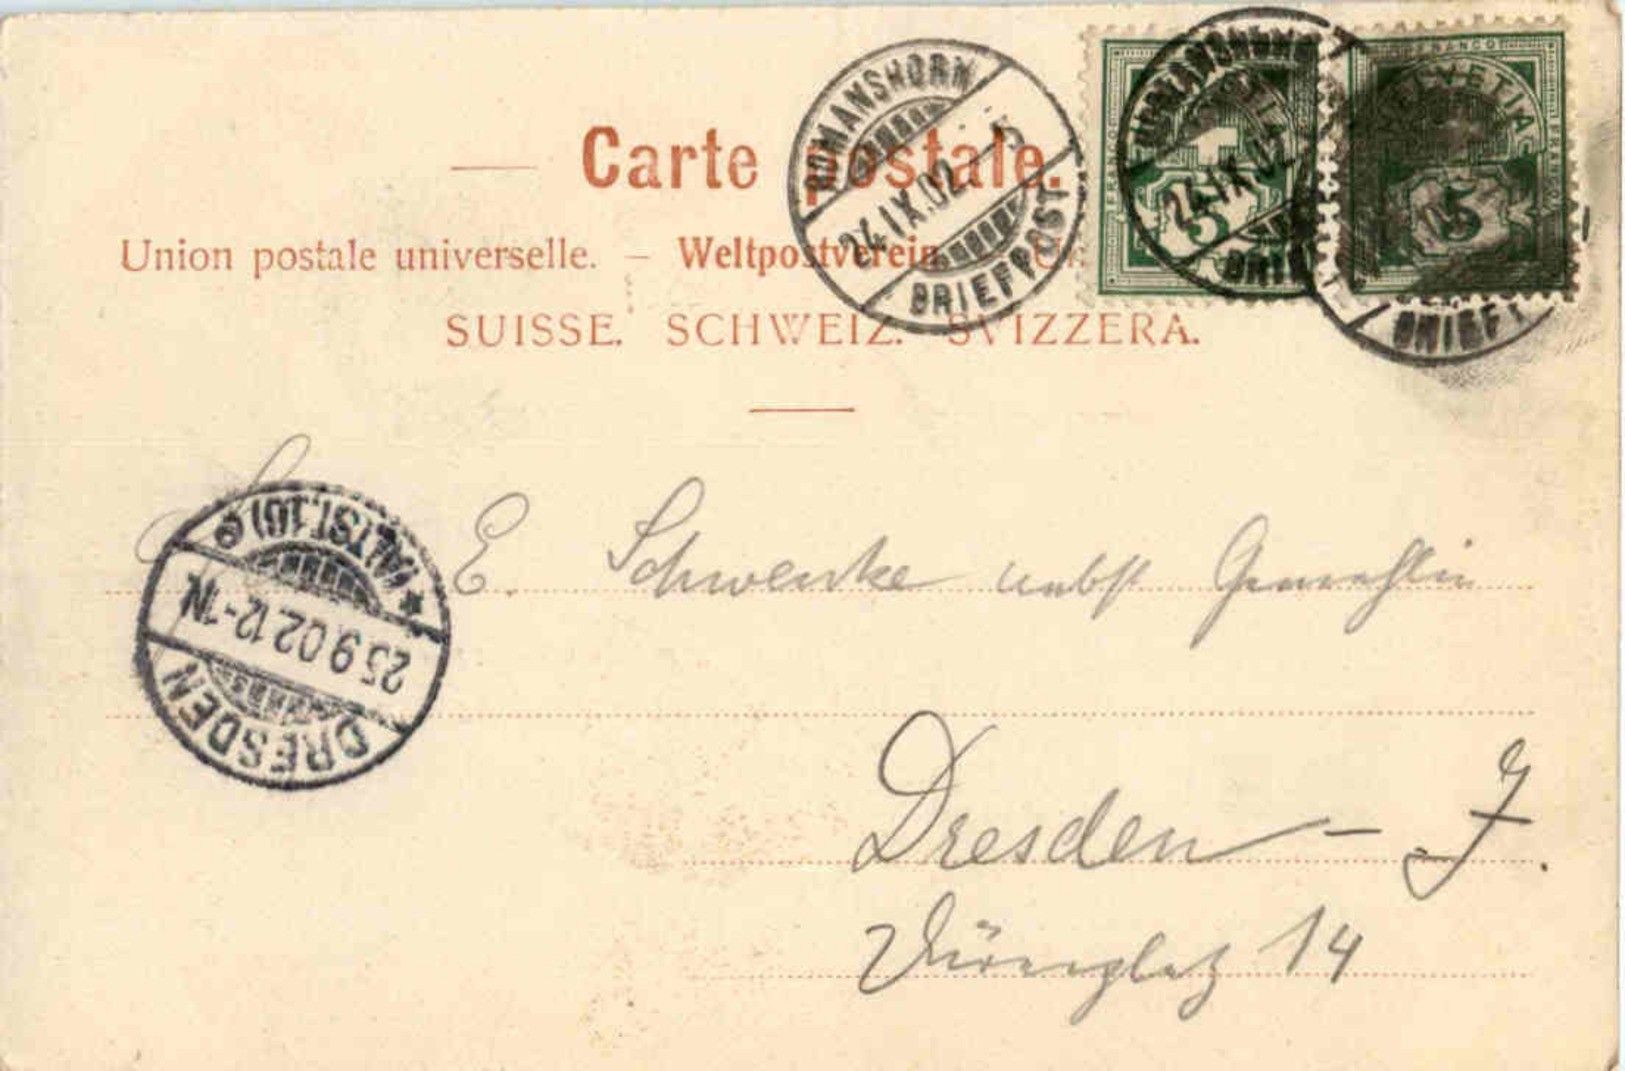 Carte postale.
Union postale universelle. — Weltpostverein
SUISSE. SCHWEIZ. SVIZZERA.
ROMANSHORN
24.IX.02.—5
BRIEFPOST
FRANCO
HELVETIA
5
24.IX.02
5
DRESDEN
25.9.02.12-1N.
* (ALTST.16) e
E. Schwenke nebst Gemahlin
Dresden – J.
Dürerplatz 14